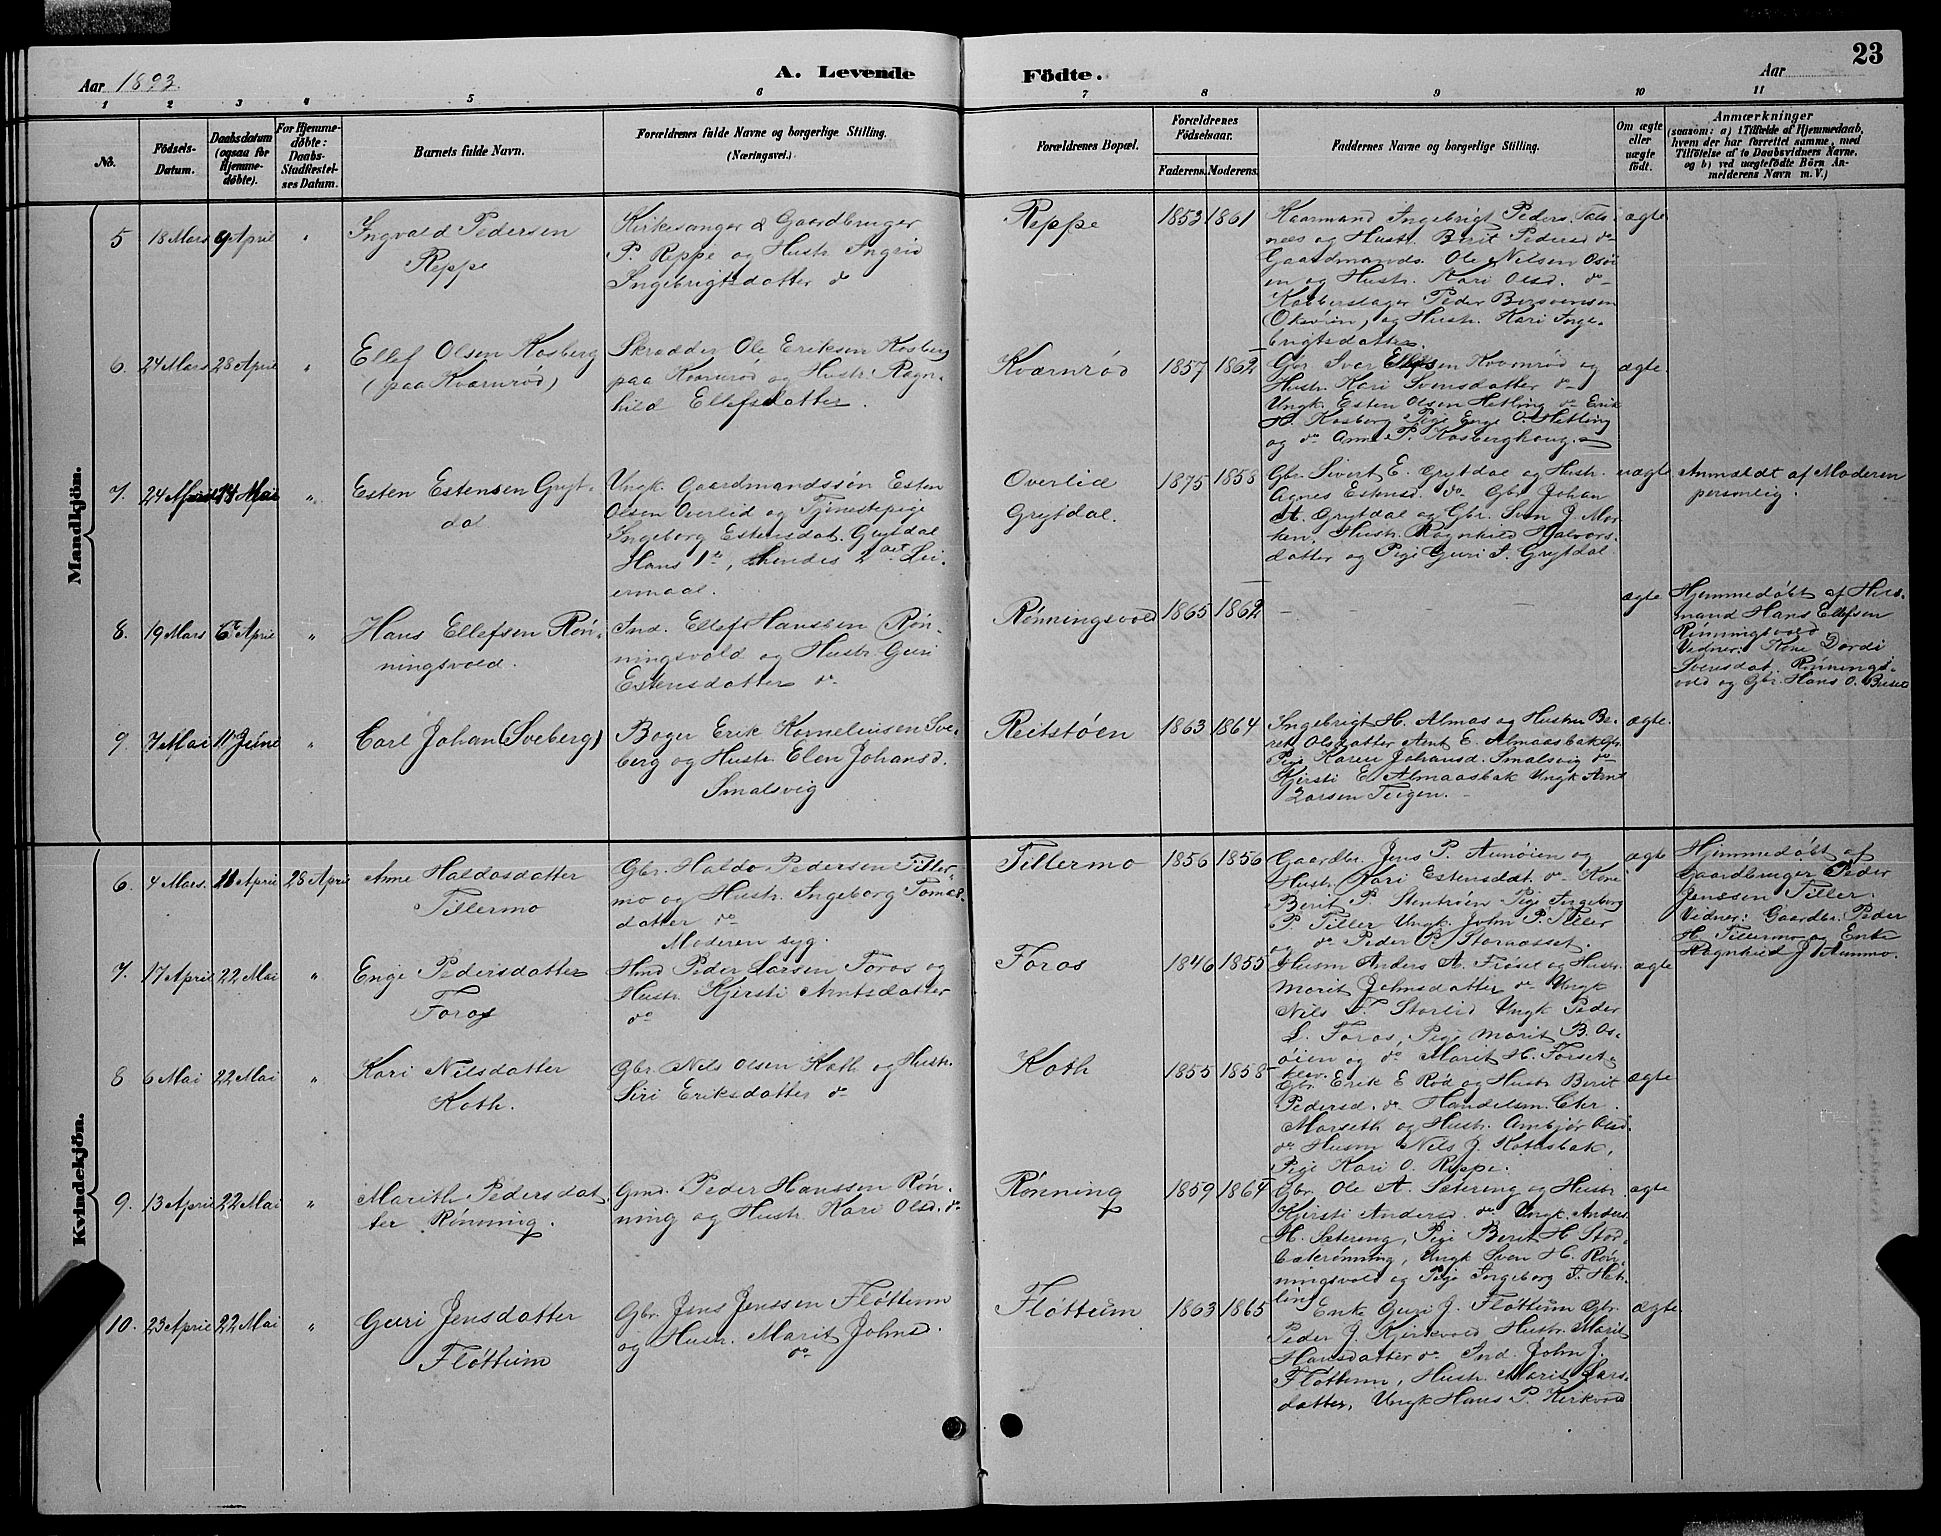 23
Aar 1893.
A. Levende Födte.
Aar
1 2 3 4 5 6 7 8 9 10 11
No.
Födsels-Datum.
Daabsdatum (ogsaa for Hjemmedøbte).
For Hjemmedøbte: Daabs-Stadfæstelses Datum.
Barnets fulde Navn.
Forældrenes fulde Navne og borgerlige Stilling.
(Næringsvei.)
Forældrenes Bopæl.
Forældrenes Födselsaar.
Faderens. Moderens.
Faddernes Navne og borgerlige Stilling.
Om ægte eller uægte født.
Anmærkninger
(saasom: a) i Tilfælde af Hjemmedaab, hvem der har forrettet samme, med Tilföielse af to Daabsvidners Navne, og b) ved uægtefödte Börn Anmelderens Navn m. V.)
Mandkjön.
5 18 Mars 9 April "
Ingvald Pedersen
Reppe
Kirkesanger & Gaardbruger
P. Reppe og Hustr. Ingrid
Ingebrigtsdatter d
Reppe
1853 1861
Kaarmand Ingebrigt Peders. Tals-
næs og Hustr. Berit Pedersd do
Gaardmands. Ole Nilsen Osöi
en og Hustr. Kari Olsd. do
Kobberslager Peder
og Hustr. Kari Inge-
brigtsdatter.
ægte
6. 24 Mars 28 April "
Ellef Olsen Kosberg
(paa Kværnrød)
Skrædder Ole Eriksen Kosberg
paa Kværnrød og Hustr. Ragn-
hild Ellefsdatter.
Kværnrød
1857 1862
Gbr. Iver Ellefsen Kværnrød og
Hustr. Kari Svensdatter do
Ungk. Esten Olsen Hetling do Erik
H. Kosberg Pige Enge O. Hetling
og do Anne P. Kosberghoug.
ægte.
7. 24 14 Mai "
Esten Estensen Gryt-
dal
Ungk. Gaardmandssön Esten
Olsen Overlid og Tjenestepige
Ingeborg Estensdat. Grytdal
Hans 1te, hendes 2det Lei-
ermaal.
Overlid
Grytdal.
1875 1858
Gbr. Sivert E. Grytdal og Hustr.
Agnes Estensd. do Gbr. Johan
A. Grytdal og Gbr. Sven J. Mor-
ken, Hustr. Ragnhild Halvors-
datter og Pige Guri S. Grytdal
uægte
Anmældt af Moderen
personlig.
8. 19 Mars 6te April "
Hans Ellefsen Røn-
ningsvold.
Ind. Ellef Hanssen Røn-
ningsvold og Hustr. Guri
Estensdatter do
Rønningsvold
1865 1862
— — —
ægte
Hjemmedøbt af Hus-
mand Hans Ellefsen
Rønningsvold
Vidner: Kone Dordi
Svensdat. Rønnings-
vold og Gbr. Hans O.
9. 7 Mai 11 Juni "
Carl Johan (Sveberg)
Bager Erik Korneliusen Sve-
berg og Hustr. Elen Johansd.
Smalsvig
Reitstøen
1863 1864
Ingebrigt H. Almas og Hustru Be-
ret Olsdatter Arnt E. Almaasbak Gbr.
Pige Karen Johansd. Smalsvig do
Kjersti E. Almaasbak Ungk Arnt
Larsen Teigen.
ægte.
Kvindekjön.
6. 4 Mars. 11 April 28 April
Anne Haldosdatter
Tillermo
Gbr. Haldo Pedersen Tiller-
mo og Hustr. Ingeborg Tomas-
datter do
Moderen syg.
Tillermo
1856 1856
Gaardbr. Jens P. Aunøien og
Hustr. Kari Estensdat. do Kone
Berit P. Stentrøen Pige Ingeborg
P. Tiller Ungk. John P. Tiller
og do Peder P. Stornesset.
ægte
Hjemmedöbt af
Gaardbruger Peder
Jenssen Tiller.
Vidner: Gaardbr. Peder
H. Tillermo og Enke
Ragnhild J. Aunmo.
7. 17 April 22 Mai "
Enge Pedersdatter
Foros
Hmd Peder Larsen Foros og
Hustr. Kjersti Arntsdatter
do
Foros
1846 1855
Husm Anders A. Frøset og Hustr.
Marit Johnsdatter do Ungk
Nils T. Storlid Ungk Peder
L. Foros, Pige Marit B. Os-
øien og do Marit H. Forset-
ælev.
ægte
8 6 Mai 22 Mai "
Kari Nilsdatter
Koth.
Gbr. Nils Olsen Koth og Hustr.
Siri Eriksdatter do
Koth
1855 1858
Gbr. Erik E Rød og Hustr Berit
Pedersd. do Handelsm. Chr.
Morseth og Hustr. Ambjør Olsd.
do Husm Nils J. Kothsbak,
Pige Kari O. Reppe.
ægte
9. 13 April 22 Mai "
Marith Pedersdat
ter Rønning.
Gmd. Peder Hanssen Røn-
ning og Hustr. Kari Olsd. do
Rønning
1859 1864
Gbr. Ole A. Sætereng og Hustr.
Kjersti Andersd. do Ungk. Anders
H. Sætereng, Pige Berit H Stod-
Ungk Sven H. Røn-
ningsvold og Pige Ingeborg I. Het-
ling
ægte
10. 23 April 22 Mai "
Guri Jensdatter
Fløttum
Gbr. Jens Jenssen Fløttum
og Hustr. Marit Johnsd.
do
Fløttum
1863 1865
Enke Guri J. Fløttum Gbr.
Peder J. Kjerkvold Hustr. Marit
Hansdatter do Ind. John J.
Fløttum, Hustr. Marit Lars-
datter, Ungk Hans P. Kirkvold
ægte